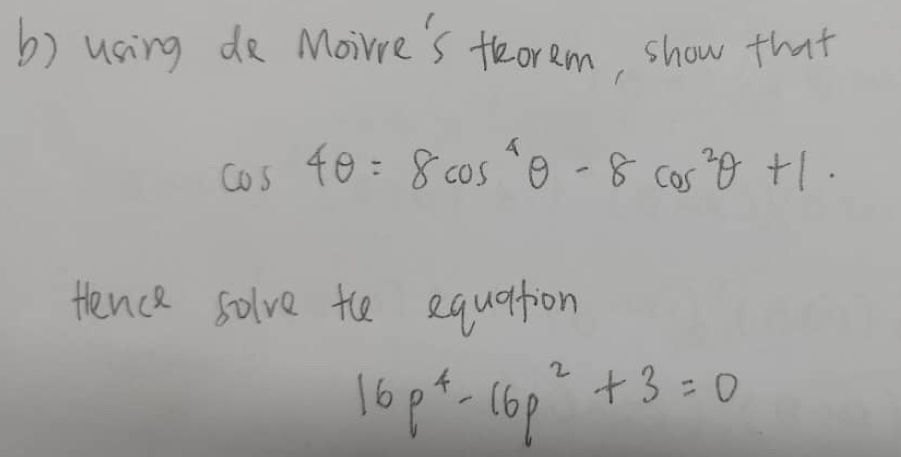 b) using de Moivre's theorem, show that
cos 4θ = 8 cos⁴θ - 8 cos²θ + 1.
Hence solve the equation
16p⁴ - 16p² + 3 = 0